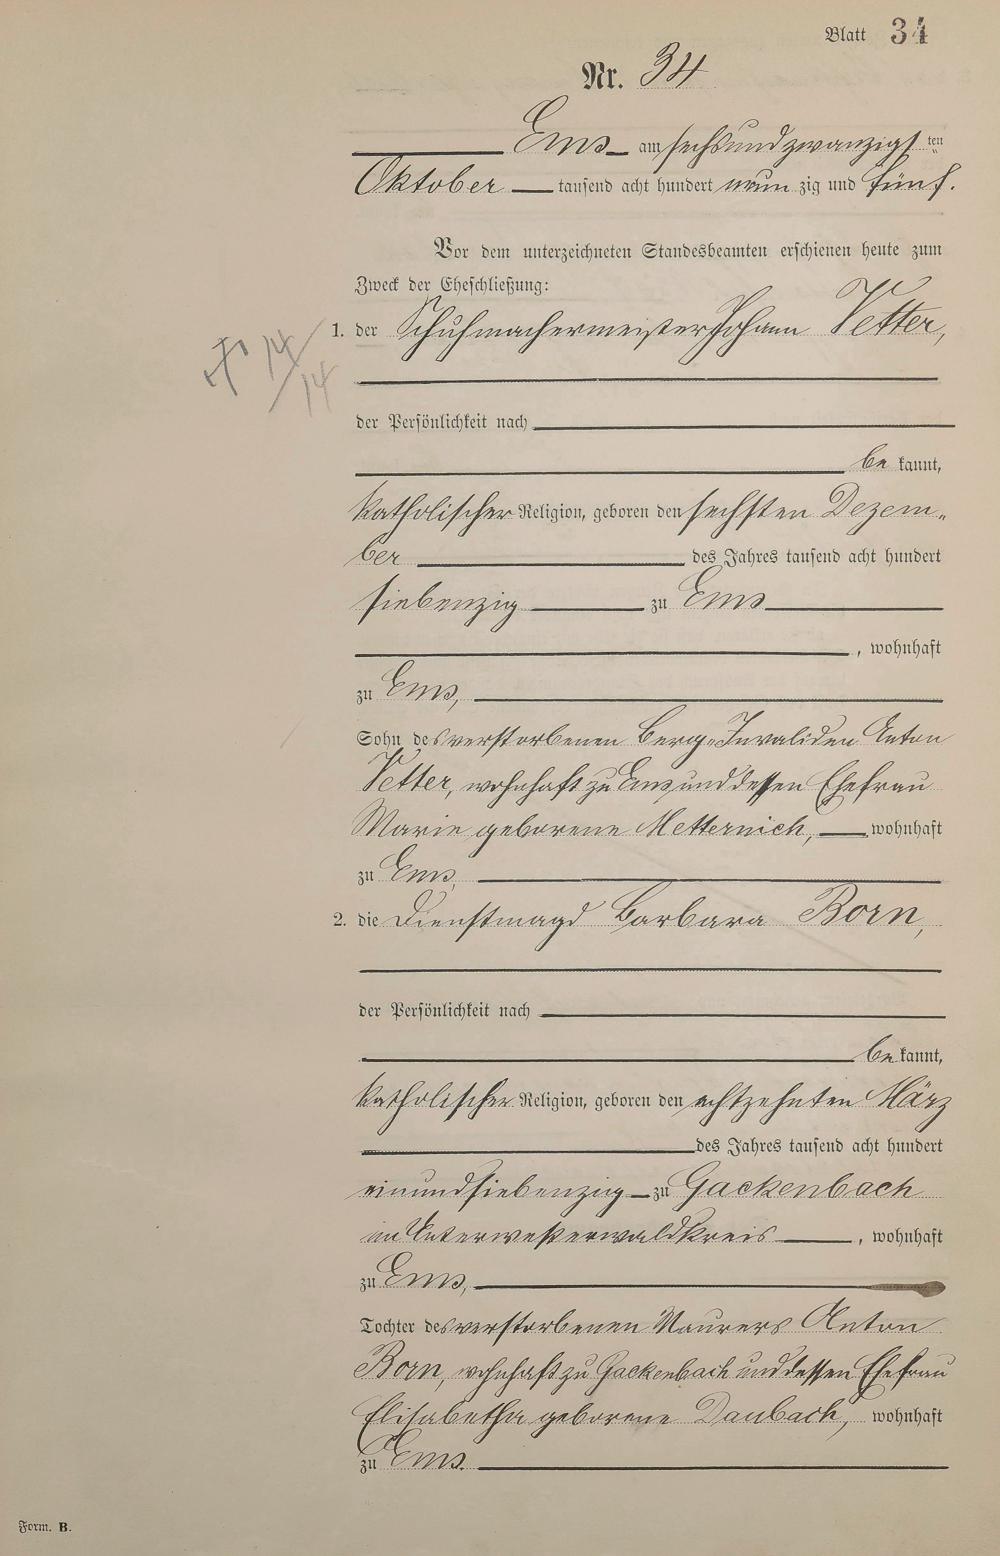 Blatt 34
Nr. 34
Ems am sechsundzwanzigsten
Oktober tausend acht hundert neun zig und fünf.
Vor dem unterzeichneten Standesbeamten erschienen heute zum
Zweck der Eheschließung:
1. der Schuhmachermeister Johann Vetter,
14/14
der Persönlichkeit nach
be kannt,
katholischer Religion, geboren den sechsten Dezem-
ber des Jahres tausend acht hundert
siebenzig zu Ems
, wohnhaft
zu Ems,
Sohn des verstorbenen Berg-Invaliden Anton
Vetter, wohnhaft zu Ems und dessen Ehefrau
Marie geborene Metternich, wohnhaft
zu Ems,
2. die Dienstmagd Barbara Born,
der Persönlichkeit nach
be kannt,
katholischer Religion, geboren den achtzehnten März
des Jahres tausend acht hundert
einundsiebenzig zu Gackenbach
im Unterwesterwaldkreis , wohnhaft
zu Ems,
Tochter des verstorbenen Maurers Anton
Born, wohnhaft zu Gackenbach und dessen Ehefrau
Elisabetha geborene Daubach, wohnhaft
zu Ems.
Form. B.